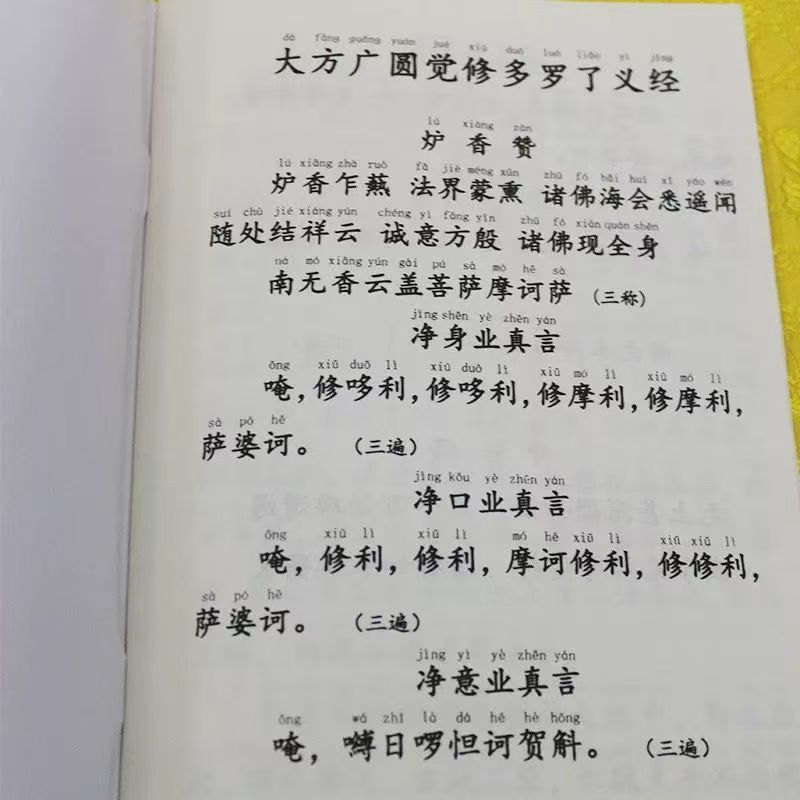 dà fāng guǎng yuán jué xiū duō luó liǎo yì jīng
大方广圆觉修多罗了义经
lú xiāng zàn
炉香赞
lú xiāng zhà ruò fǎ jiè méng xūn zhū fó hǎi huì xī yáo wén
炉香乍爇 法界蒙熏 诸佛海会悉遥闻
suí chù jié xiáng yún chéng yì fāng yīn zhū fó xiàn quán shēn
随处结祥云 诚意方殷 诸佛现全身
ná mó xiāng yún gài pú sà mó hē sà
南无香云盖菩萨摩诃萨 (三称)
jìng shēn yè zhēn yán
净身业真言
ōng xiū duō lì xiū duō lì xiū mó lì xiū mó lì
唵,修哆利,修哆利,修摩利,修摩利,
sà pó hē
萨婆诃。 (三遍)
jìng kǒu yè zhēn yán
净口业真言
ōng xiū lì xiū lì mó hē xiū lì xiū xiū lì
唵,修利,修利,摩诃修利,修修利,
sà pó hē
萨婆诃。 (三遍)
jìng yì yè zhēn yán
净意业真言
ōng wá zhī là dá hē hè hōng
唵,嚩日啰怛诃贺斛。 (三遍)